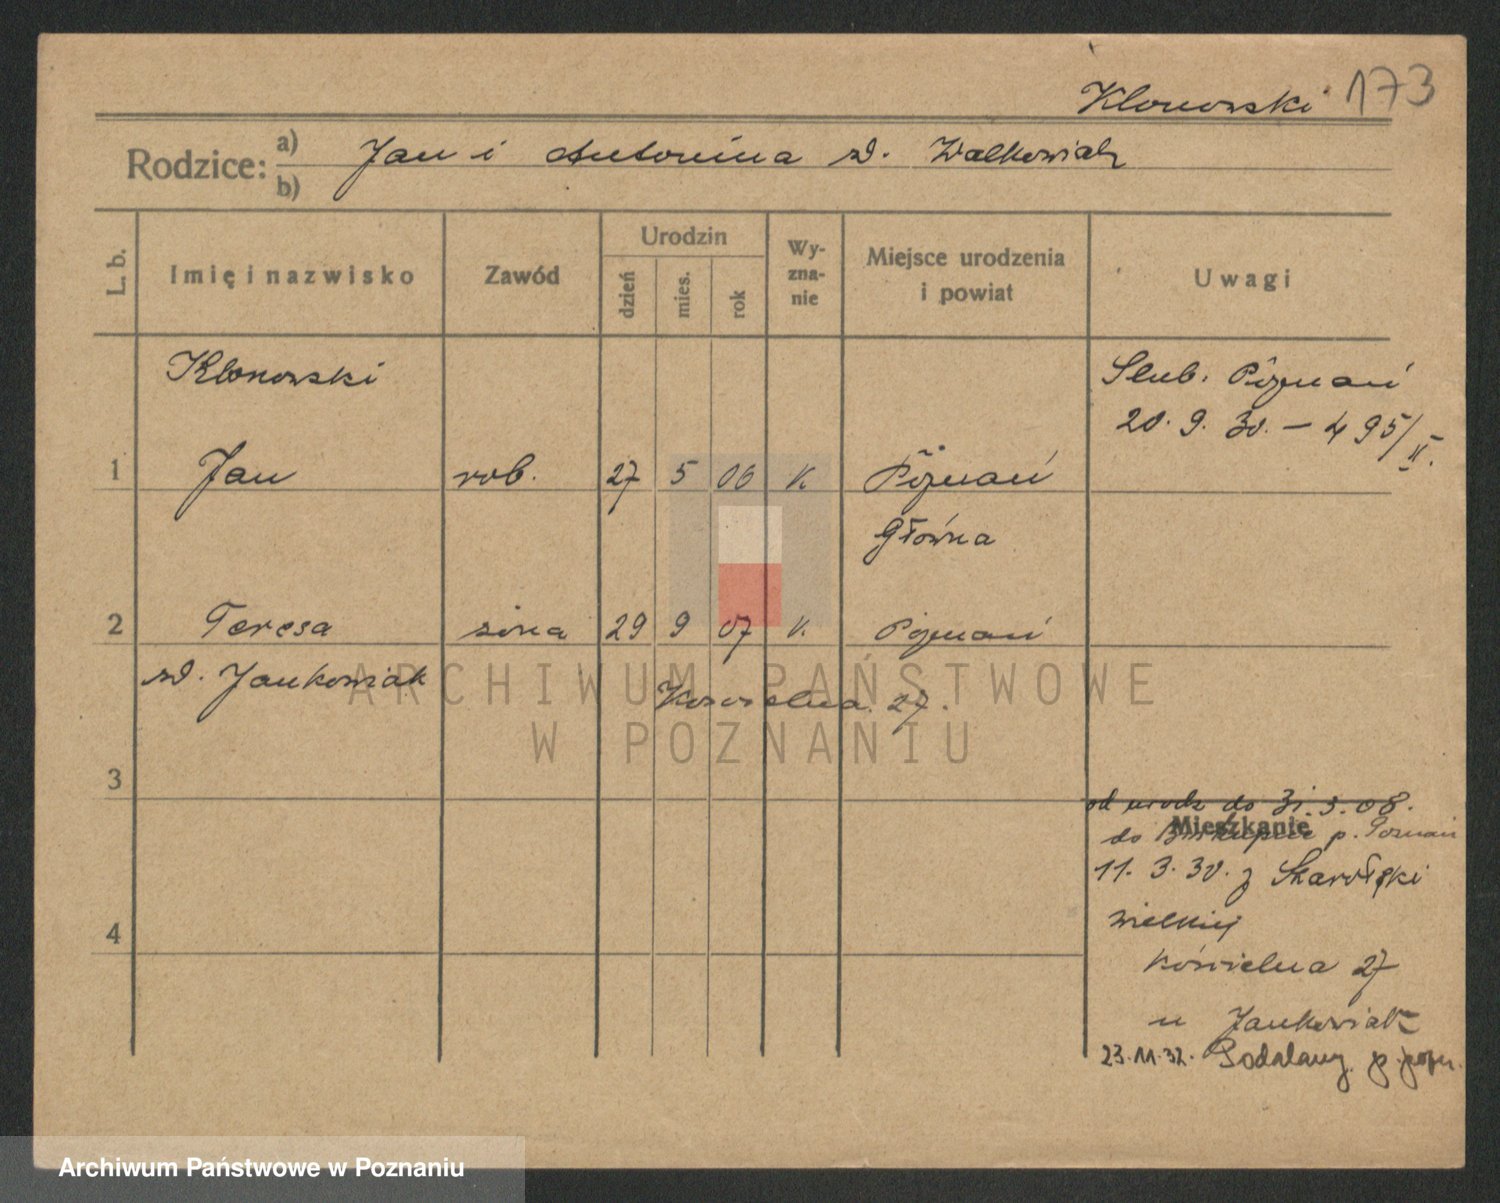 Klonowski 173
Rodzice: a) Jan i Antonina zd. Walkowiak
b)
L. b.
Imię i nazwisko
Zawód
Urodzin
dzień
mies.
rok
Wy-
zna-
nie
Miejsce urodzenia
i powiat
Uwagi
Klonowski
Ślub. Poznań
20. 9. 30. — 495/II.
1 Jan rob. 27 5 06 k. Poznań
Główna
2 Teresa żona 29 9 07 k. Poznań
zd. Jankowiak
Kościelna 27.
3
od urodz do 31.3.08.
Mieszkanie
do Biskupice p. Poznań
11. 3. 30. z
wielkiej
4
Kościelna 27
u Jankowiak
23.11.32. p. pozn.
ARCHIWUM PAŃSTWOWE
W POZNANIU
Archiwum Państwowe w Poznaniu